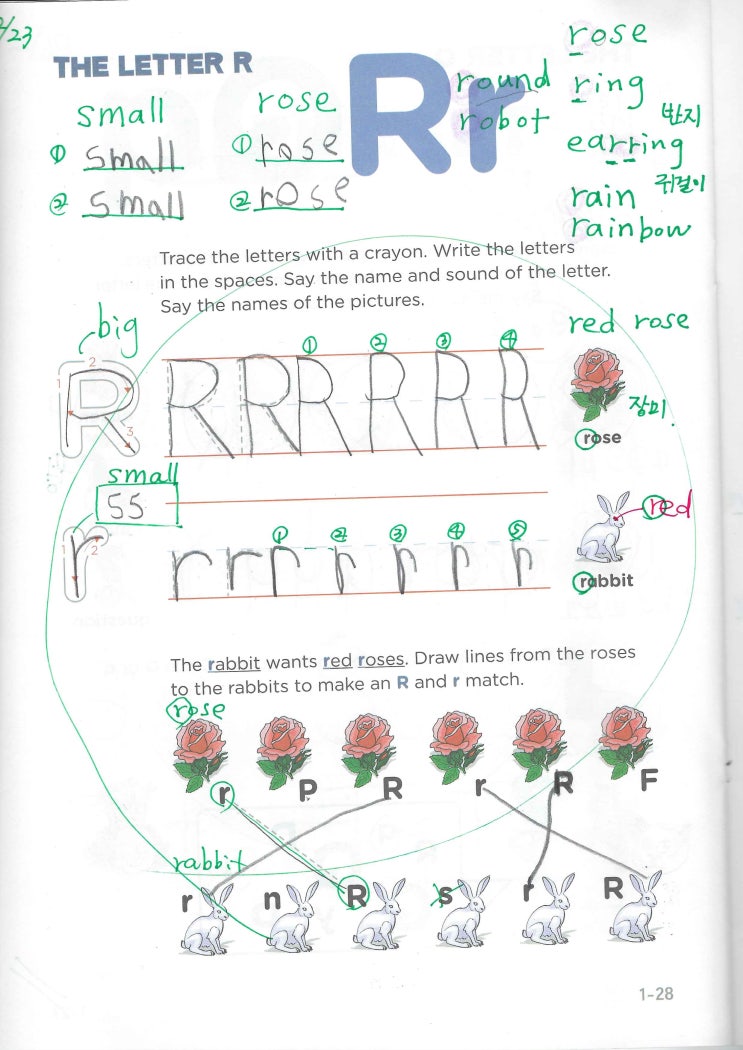 /23
THE LETTER R
Rr
small
① small
② small
rose
① rose
② rose
round
robot
rose
ring
반지
earring
귀걸이
rain
rainbow
Trace the letters with a crayon. Write the letters
in the spaces. Say the name and sound of the letter.
Say the names of the pictures.
big
R 1 2 3
① ② ③ ④
R R R R R R R
red rose
장미.
rose
small
55
r 2
① ② ③ ④ ⑤
r r r r r r r
red
rabbit
The rabbit wants red roses. Draw lines from the roses
to the rabbits to make an R and r match.
rose
r P R r R F
rabbit
r n R s r R
1-28